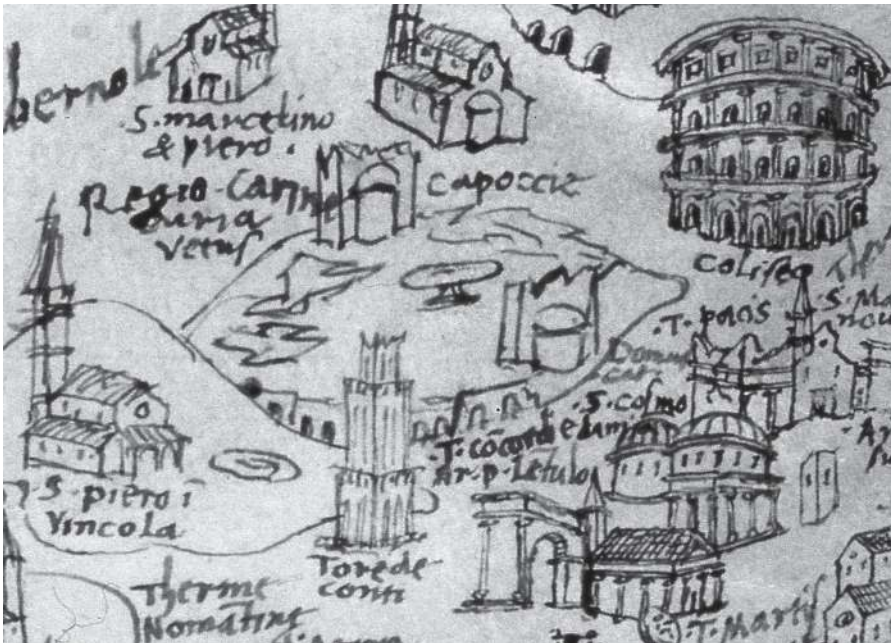 .S. marcelino
& piero.
Regio. Carine
curia
vetus
capoccie
coliseo
.T. pacis
.S. M.
nou
.S. cosmo
e damia
.T. cōcordie
Ar. p. Lētulo
.S. piero ī
vincola
Tore de
conti
Therme
Nomātine
.T. Martis